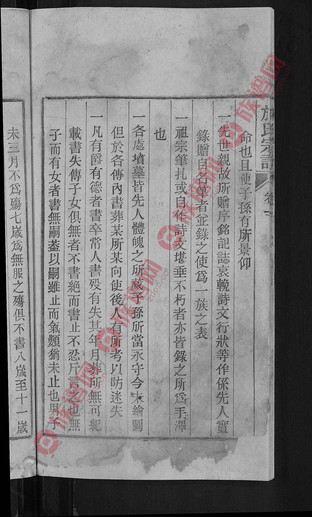 施氏宗譜 卷
命也且使子孫有所景仰
一先世親故所贈序銘記誌哀輓詩文行狀等作係先人實
錄贈自名筆者並錄之使為一族之表
一祖宗筆扎或自作詩文堪垂不朽者亦皆錄之所為手澤
也
一各處墳墓皆先人體魄之所藏子孫所當永守今未繪圖
但於各傳內書葬某所某向使後人有所考以防迷失
一凡有爵有德者書卒常人書歿有失其年月葬所無可紀
載書失傳子女俱無者不書絕而書止不忍斥言也無
子而有女者書無嗣蓋以嗣雖止而氣類猶未止也男子
未三月不為殤七歲為無服之殤俱不書八歲至十一歲